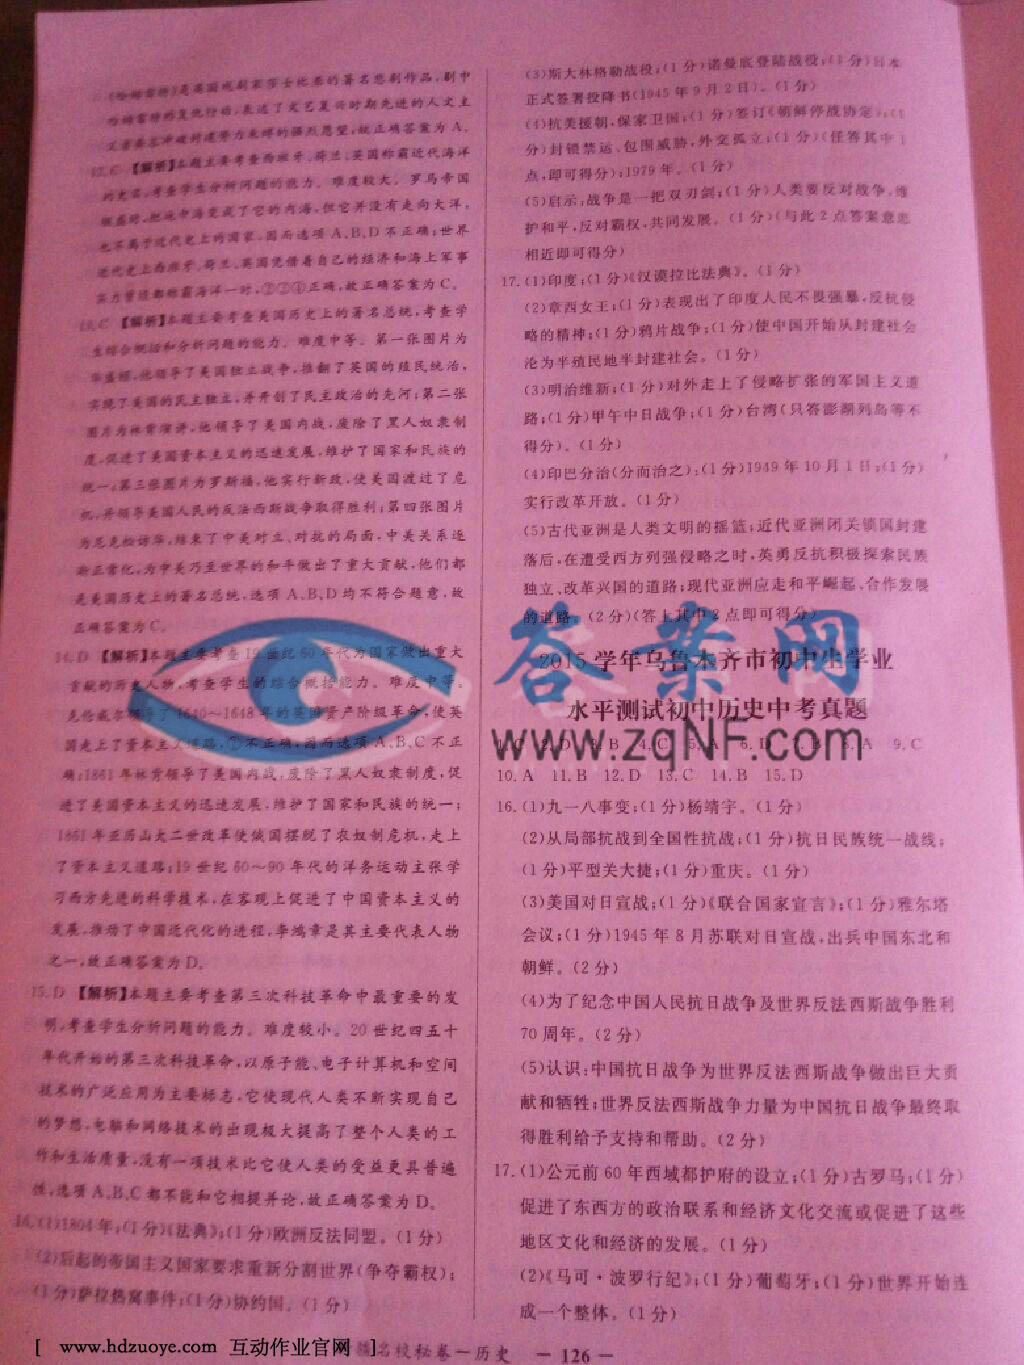 《哈姆雷特》是英国戏剧家莎士比亚的著名悲剧作品,剧中
哈姆雷特的复仇行动,表达了文艺复兴时期先进的人文主
义者要求冲破封建势力束缚的强烈愿望,故正确答案为A。
12.C 【解析】本题主要考查西班牙、荷兰、英国称霸近代海洋
的史实,考查学生分析问题的能力。难度较大。罗马帝国
强盛时,把地中海变成了它的内海,但它并没有走向大洋,
也不属于近代史上的国家,因而选项A、B、D不正确;世界
近代史上西班牙、荷兰、英国凭借着自己的经济和海上军事
实力曾经都称霸海洋一时,②③④正确,故正确答案为C。
13.C 【解析】本题主要考查美国历史上的著名总统,考查学
生综合概括和分析问题的能力。难度中等。第一张图片为
华盛顿,他领导了美国独立战争,推翻了英国的殖民统治,
实现了美国的民主独立,并开创了民主政治的先河;第二张
图片为林肯演讲,他领导了美国内战,废除了黑人奴隶制
度,促进了美国资本主义的迅速发展,维护了国家和民族的
统一。第三张图片为罗斯福,他实行新政,使美国渡过了危
机,并领导美国人民的反法西斯战争取得胜利;第四张图片
为尼克松访华,结束了中美对立、对抗的局面,中美关系逐
渐正常化,为中美乃至世界的和平做出了重大贡献,他们都
是美国历史上的著名总统,选项A、B、D均不符合题意,故
正确答案为C。
14.D 【解析】本题主要考查19世纪60年代为国家做出重大
贡献的历史人物,考查学生的综合概括能力。难度中等。
克伦威尔领导了1640～1648年的英国资产阶级革命,使英
国走上了资本主义道路,①不正确,因而选项A、B、C不正
确;1861年林肯领导了美国内战,废除了黑人奴隶制度,促
进了美国资本主义的迅速发展,维护了国家和民族的统一;
1861年亚历山大二世改革使俄国摆脱了农奴制危机,走上
了资本主义道路;19世纪60～90年代的洋务运动主张学
习西方先进的科学技术,在客观上促进了中国资本主义的
发展,推动了中国近代化的进程,李鸿章是其主要代表人物
之一,故正确答案为D。
15.D 【解析】本题主要考查第三次科技革命中最重要的发
明,考查学生分析问题的能力。难度较小。20世纪四五十
年代开始的第三次科技革命,以原子能、电子计算机和空间
技术的广泛应用为主要标志,它使现代人类不断实现自己
的梦想,电脑和网络技术的出现极大提高了整个人类的工
作和生活质量,没有一项技术比它使人类的受益更具普遍
性,选项A、B、C都不能和它相提并论,故正确答案为D。
16.(1)1804年;(1分)《法典》;(1分)欧洲反法同盟。(1分)
(2)后起的帝国主义国家要求重新分割世界(争夺霸权);
(1分)萨拉热窝事件;(1分)协约国。(1分)
(3)斯大林格勒战役;(1分)诺曼底登陆战役;(1分)日本
正式签署投降书(1945年9月2日)。(1分)
(4)抗美援朝,保家卫国;(1分)签订《朝鲜停战协定》;(1
分)封锁禁运、包围威胁,外交孤立;(1分)(任答其中1
点,即可得分);1979年。(1分)
(5)启示:战争是一把双刃剑;(1分)人类要反对战争,维
护和平,反对霸权,共同发展。(1分)(与此2点答案意思
相近即可得分)
17.(1)印度;(1分)《汉谟拉比法典》。(1分)
(2)章西女王;(1分)表现出了印度人民不畏强暴,反抗侵
略的精神;(1分)鸦片战争;(1分)使中国开始从封建社会
沦为半殖民地半封建社会。(1分)
(3)明治维新;(1分)对外走上了侵略扩张的军国主义道
路;(1分)甲午中日战争;(1分)台湾(只答澎湖列岛等不
得分)。(1分)
(4)印巴分治(分而治之);(1分)1949年10月1日;(1分)
实行改革开放。(1分)
(5)古代亚洲是人类文明的摇篮;近代亚洲闭关锁国封建
落后,在遭受西方列强侵略之时,英勇反抗积极探索民族
独立、改革兴国的道路;现代亚洲应走和平崛起、合作发展
的道路。(2分)(答上其中2点即可得分)
2015学年乌鲁木齐市初中生学业
水平测试初中历史中考真题
答案网
www.zqNF.com
1.C 2.D 3.B 4.C 5.A 6.D 7.B 8.A 9.C
10.A 11.B 12.D 13.C 14.B 15.D
16.(1)九一八事变;(1分)杨靖宇。(1分)
(2)从局部抗战到全国性抗战;(1分)抗日民族统一战线;
(1分)平型关大捷;(1分)重庆。(1分)
(3)美国对日宣战;(1分)《联合国家宣言》;(1分)雅尔塔
会议;(1分)1945年8月苏联对日宣战,出兵中国东北和
朝鲜。(2分)
(4)为了纪念中国人民抗日战争及世界反法西斯战争胜利
70周年。(2分)
(5)认识:中国抗日战争为世界反法西斯战争做出巨大贡
献和牺牲;世界反法西斯战争力量为中国抗日战争最终取
得胜利给予支持和帮助。(2分)
17.(1)公元前60年西域都护府的设立;(1分)古罗马;(1分)
促进了东西方的政治联系和经济文化交流或促进了这些
地区文化和经济的发展。(1分)
(2)《马可·波罗行纪》;(1分)葡萄牙;(1分)世界开始连
成一个整体。(1分)
[ www.hdzuoye.com 互动作业官网 ]
名校秘卷—历史 — 126 —